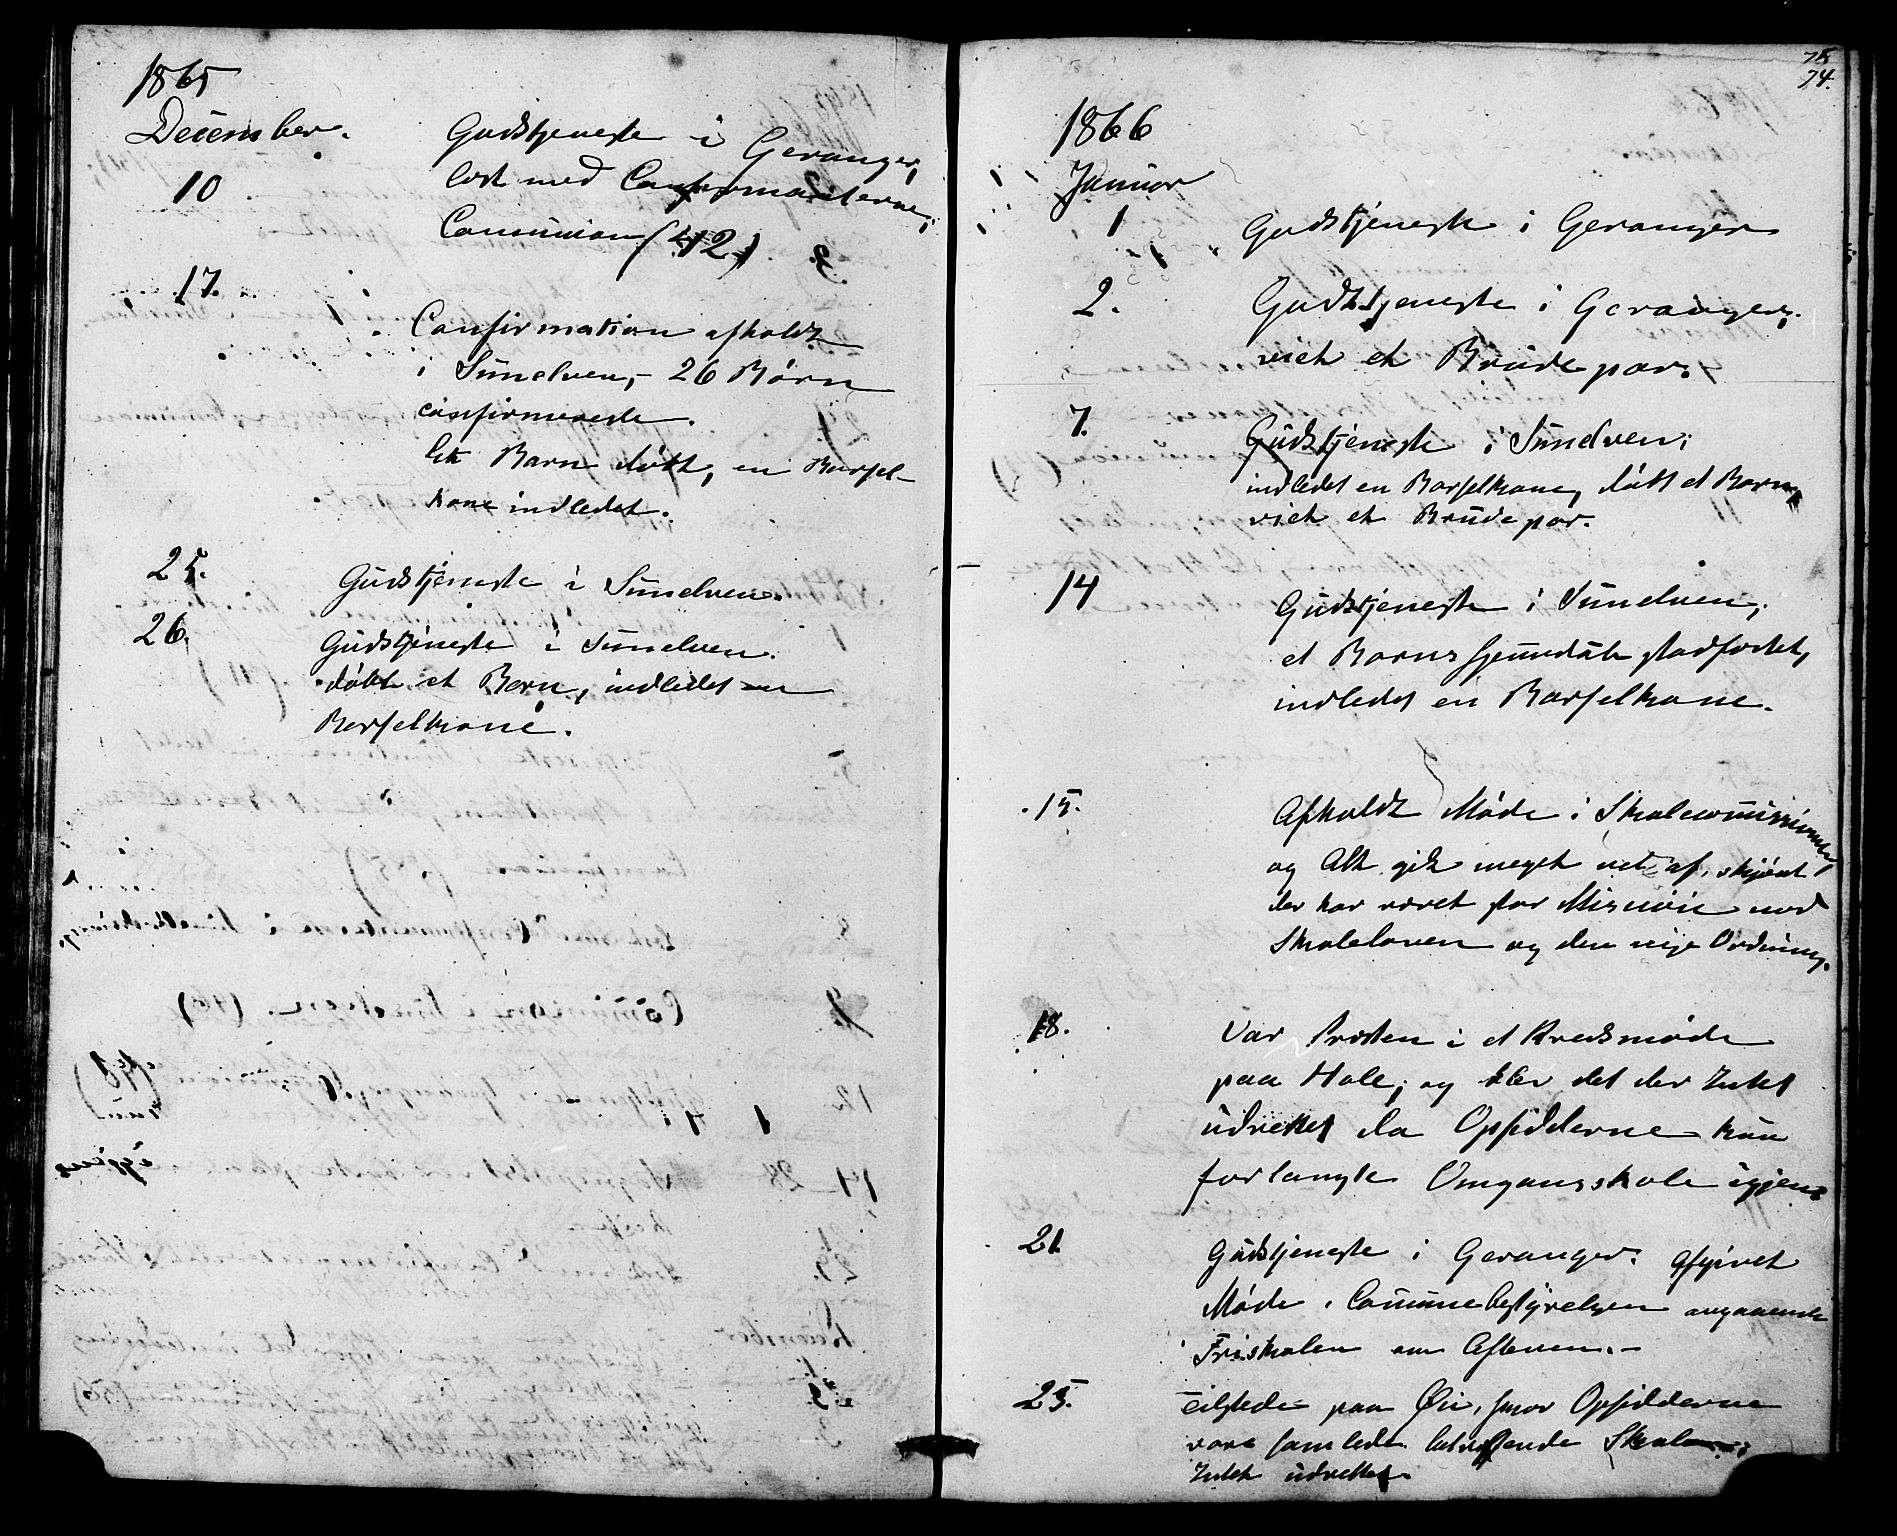 1865
December.
10
Gudstjeneste i Geranger,
læst med Confirmanterne,
Communion (42)
17.
Confirmation afholdt
i Sunelven, 26 Børn
confirmerede.
Et Barn døbt, en Barsel-
kone indledet.
25.
Gudstjeneste i Sunelven.
26.
Gudstjeneste i Sunelven.
døbt et Barn, indledet en
Barselkone.
75
74.
1866
Januar
1
Gudstjeneste i Geranger
2.
Gudstjeneste i Geranger,
viet et Brudepar.
7.
Gudstjeneste i Sunelven;
indledet en Barselkone, døbt et Barn,
viet et Brudepar.
14
Gudstjeneste i Sunelven,
et Barns hjemmedåb stadfæstet,
indledet en Barselkone.
15.
Afholdt Møde i Skolecommissionen,
og Alt gik meget vel af, skjønt
der har været stor Misnøie med
Skoleloven og den nye Ordning.
18.
Var Præsten i et Kredsmøde
paa Hole, og blev det der Intet
udrettet da Opsidderne kun
forlangte Omgangsskole igjen.
21
Gudstjeneste i Geranger. Afgivet
Møde i Communebestyrelsen angaaende
Friskolen om Aftenen.-
25.
Tilstede paa Øie, hvor Opsidderne
vare samlede betreffende Skolen;
Intet udrettet.